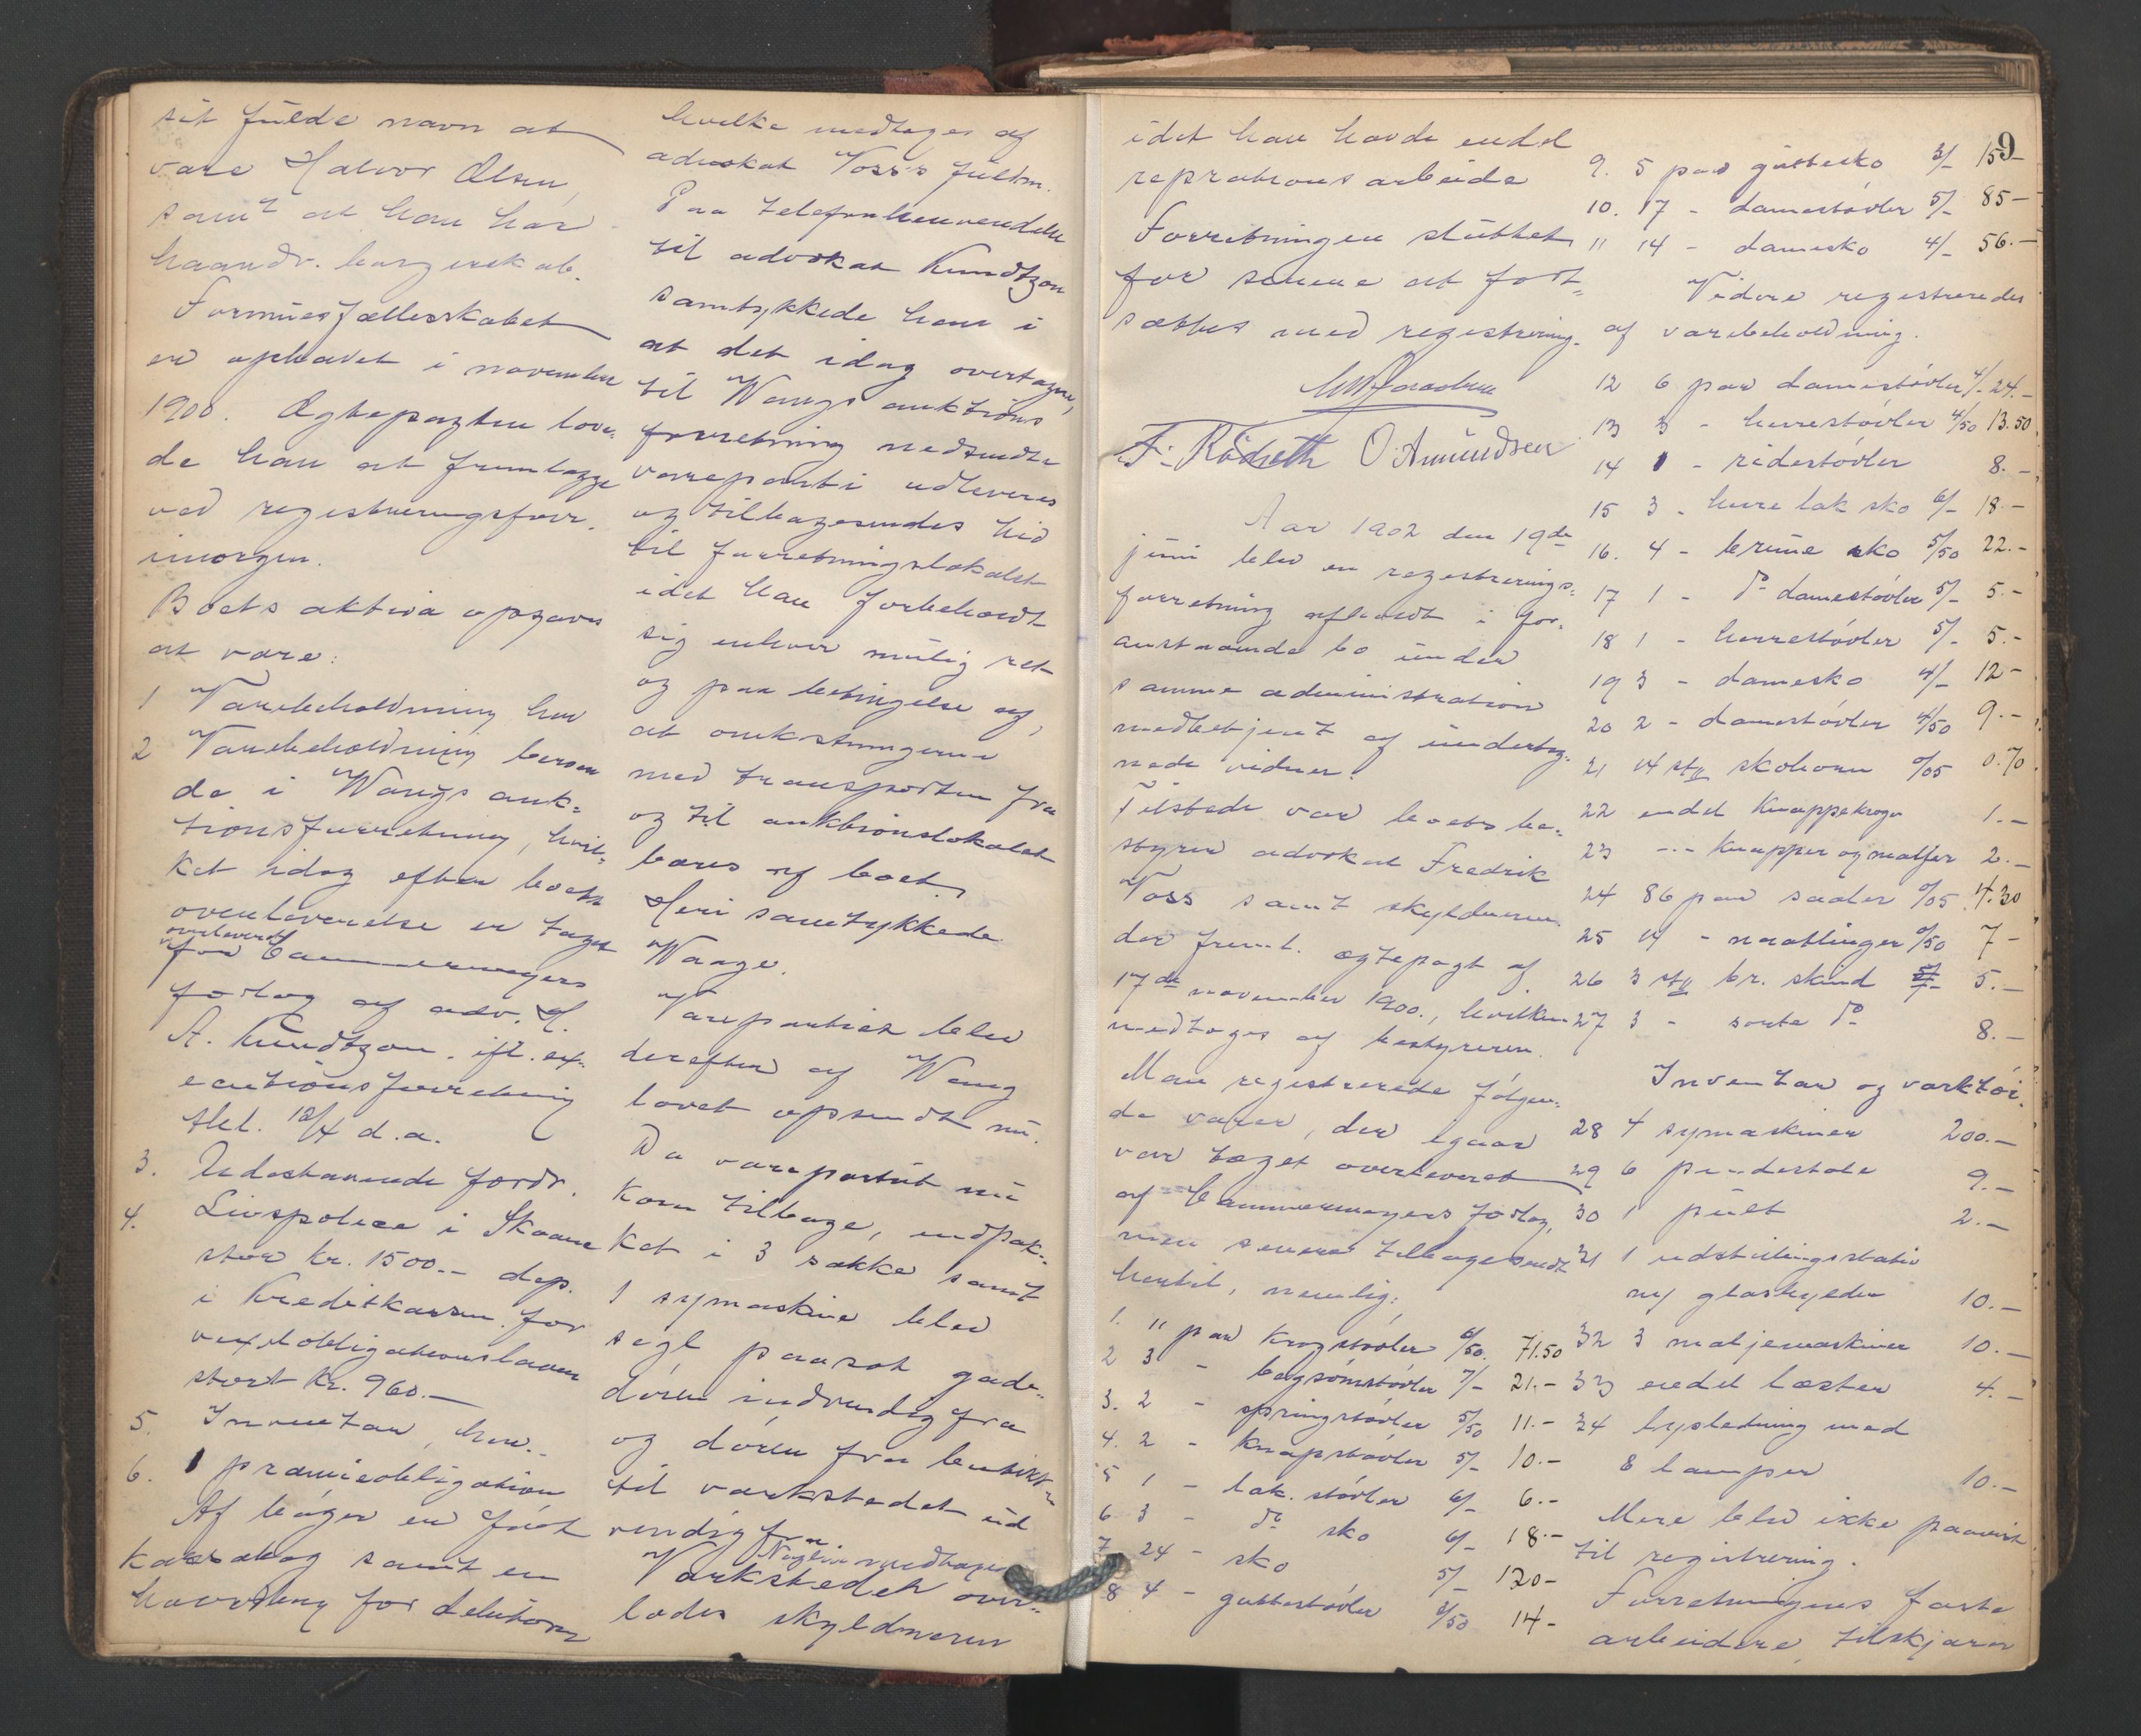 sit fulde navn at
være Halvor Olsen,
samt at han har
haandv. borgerskab.
Formuesfælleskabet
er ophævet i november
1900. Ægtepagten love-
de han at fremlægge
ved registreringsforr.
imorgen.
Boets aktiva opgaves
at være:
1 Varebeholdning her
2 Varebeholdning beroen
de i Wangs auk-
tionsforretning, hvil-
ket idag efter boets
overleverelse er taget
overleveret
for Cammermeyers
forlag af adv. H.
A. Knudtzon ifl. ex-
ecutionsforretning
afhl. 12/4 d.a.
3. Udestaaende fordr.
4. Livspolice i Skaane
stor kr. 1500.- dep.
i Kreditkassen for
vexelobligationslaan
stort kr. 960.-
5. Inventar, her.-
6. 1 præmieobligation
Af bøger er ført
kassabog samt en
haandbog for debitorer
hvilke medtages af
advokat Voss's fuldm.
Paa telefonhenvendelse
til advokat Knudtzon
samtykkede han i
at det idag overtagne,
til Wangs auktions
forretning nedsendte
vareparti udleveres
og tilbagesendes hid
til forretningslokalet
idet han forbeholdt
sig enhver mulig ret
og paa betingelse af,
at omkostningerne
med transporten fra
og til auktionslokalet
bæres af boet.
Heri samtykkede
Waage.
Varepartiet blev
derefter af Wang
lovet opsendt nu.
Da varepartiet nu
kom tilbage, indpak-
ket i 3 sække samt
1 symaskine blev
segl paasat gade-
døren indvendig fra
og døren fra butikken
til værkstedet ud
vendig fra
Nøglen medtages
Værkstedet over-
lodes skyldneren
9
idet han havde endel
reprationsarbeide
Forretningen sluttet
for senere at fort-
sættes med registrering.
F. Rødseth O. Amundsen
Aar 1902 den 19de
juni blev en registrerings-
forretning afholdt i for-
anstaaende bo under
samme administration
medbetjent af underteg-
nede vidner.
Tilstede var boets be-
styrer advokat Fredrik
Voss samt skyldneren
der freml. ægtepagt af
17de november 1900., hvilken
medtoges af bestyreren.
Man registrerede følgen-
de varer, der igaar
var taget overleveret
af Cammermeyers forlag,
men senere tilbagesendt
hertil, nemlig:
1. 11 par krogstøvler 6/50. 71.50
2 3 - bagsømstøvler 7/- 21.-
3. 2 - springstøvler 5/50 11.-
4. 2 - knapstøvler 5/- 10.-
5 1 - lak. støvler 6/- 6.-
6 3 - do sko 6/- 18.-
7 24 - sko 5/- 120-
8 4 - guttestøvler 3/50 14-
9. 5 par guttesko 3/- 15-
10. 17 - damestøvler 5/- 85-
11 14 - damesko 4/- 56.-
Videre registreredes
af varebeholdning.
12 6 par damestøvler 4/- 24.-
13 3 - herrestøvler 4/50 13.50
14 1 - ridestøvler 8.-
15 3 - herre lak sko 6/- 18.-
16. 4 - brune sko 5/50 22.-
17 1 - do damestøvler 5/- 5.-
18 1 - herrestøvler 5/- 5.-
19 3 - damesko 4/- 12-
20 2 - damestøvler 4/50 9.-
21 14 stk skohorn 0/05 0.70
22 endel knappekroge 1.-
23 -.- knapper og maljer 2.-
24 86 par saaler 0/05 4.30
25 14 - naatlinger 0/50 7-
26 3 stk br. skind 5.-
27 3 - sorte do 8.-
Inventar og værktøi.
28 4 symaskiner 200.-
29 6 pindestole 9.-
30 1 pult 2.-
31 1 udstillingsstativ
m/ glashylder 10.-
32 3 maljemaskiner 10.-
33 endel læster 4.-
34 lysledning med
8 lamper 10.-
Mere blev ikke paavist
til registrering.
Forretningens faste
arbeidere, tilskjærer